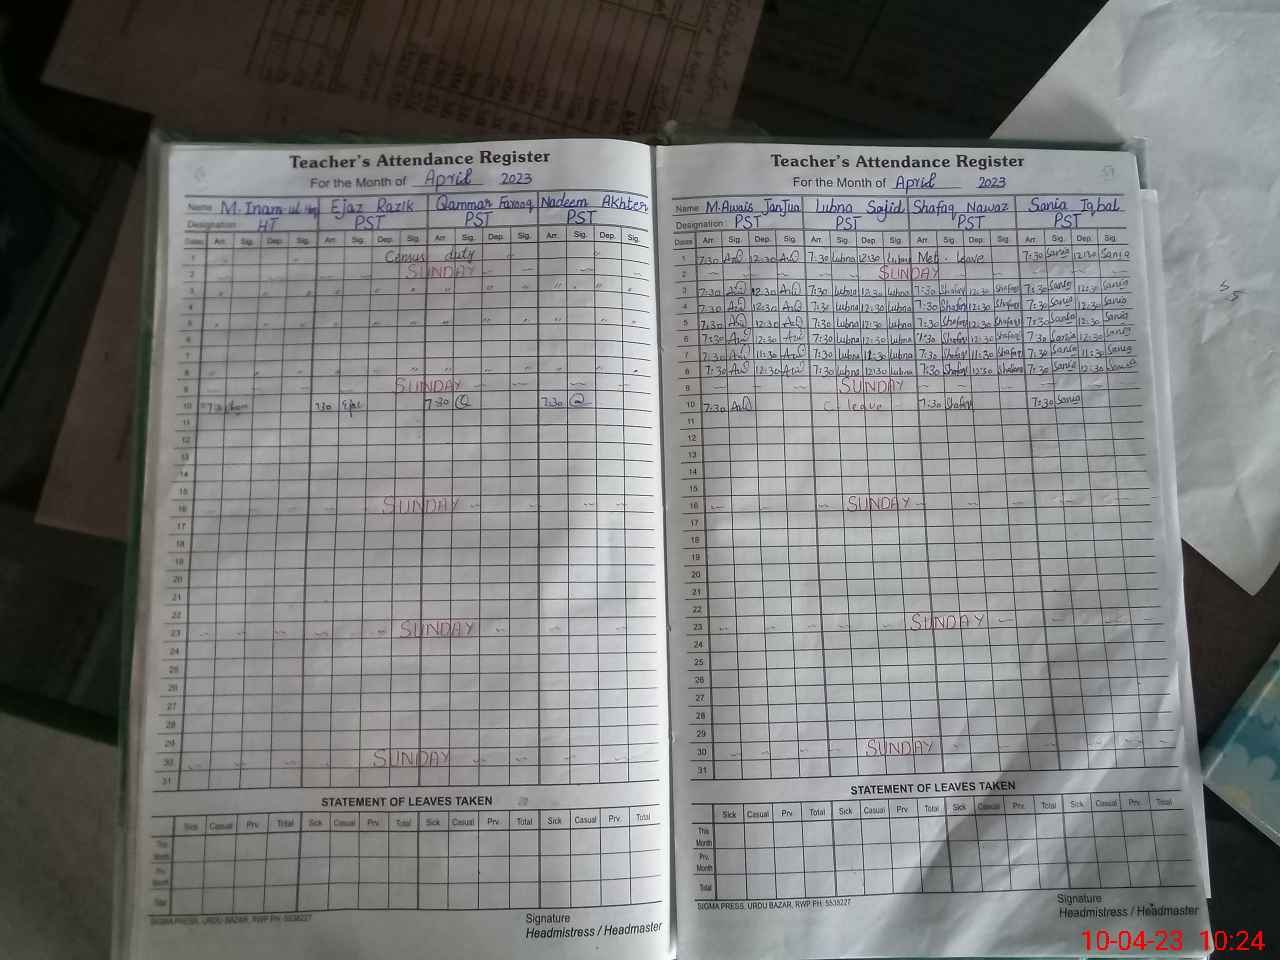 Teacher's Attendance Register
For the Month of April 2023
Name M. Inam ul Haq Ejaz Razik Qammar Farooq Nadeem Akhter
Designation HT PST PST PST
Dates Arr. Sig. Dep. Sig. Arr. Sig. Dep. Sig. Arr. Sig. Dep. Sig. Arr. Sig. Dep. Sig.
1 Census duty
2 SUNDAY
3 " " " " " "
4
5 " " " " " "
6
7
8 " " " " " "
9 SUNDAY
10 7:30 7:30 Ejaz 7:30 7:30
11
12
13
14
15
16 SUNDAY
17
18
19
20
21
22
23 SUNDAY
24
25
26
27
28
29
30 SUNDAY
31
STATEMENT OF LEAVES TAKEN
Sick Casual Prv. Total Sick Casual Prv. Total Sick Casual Prv. Total Sick Casual Prv. Total
This Month
Prv. Month
Total
SIGMA PRESS, URDU BAZAR, RWP PH: 5538227
Signature
Headmistress / Headmaster
Teacher's Attendance Register
For the Month of April 2023
Name M.Awais Janjua Lubna Sajid Shafaq Nawaz Sania Iqbal
Designation PST PST PST PST
Dates Arr. Sig. Dep. Sig. Arr. Sig. Dep. Sig. Arr. Sig. Dep. Sig. Arr. Sig. Dep. Sig.
1 7:30 12:30 7:30 Lubna 12:30 Lubna Mat. leave 7:30 Sania 12:30 Sania
2 SUNDAY
3 7:30 12:30 7:30 Lubna 12:30 Lubna 7:30 Shafaq 12:30 Shafaq 7:30 Sania 12:30 Sania
4 7:30 12:30 7:30 Lubna 12:30 Lubna 7:30 Shafaq 12:30 Shafaq 7:30 Sania 12:30 Sania
5 7:30 12:30 7:30 Lubna 12:30 Lubna 7:30 Shafaq 12:30 Shafaq 7:30 Sania 12:30 Sania
6 7:30 12:30 7:30 Lubna 12:30 Lubna 7:30 Shafaq 12:30 Shafaq 7:30 Sania 12:30 Sania
7 7:30 11:30 7:30 Lubna 11:30 Lubna 7:30 Shafaq 11:30 Shafaq 7:30 Sania 11:30 Sania
8 7:30 12:30 7:30 Lubna 12:30 Lubna 7:30 Shafaq 12:30 Shafaq 7:30 Sania 12:30 Sania
9 SUNDAY
10 7:30 C. leave 7:30 Shafaq 7:30 Sania
11
12
13
14
15
16 SUNDAY
17
18
19
20
21
22
23 SUNDAY
24
25
26
27
28
29
30 SUNDAY
31
STATEMENT OF LEAVES TAKEN
Sick Casual Prv. Total Sick Casual Prv. Total Sick Casual Prv. Total Sick Casual Prv. Total
This Month
Prv. Month
Total
SIGMA PRESS, URDU BAZAR, RWP PH: 5538227
Signature
Headmistress / Headmaster
10-04-23 10:24